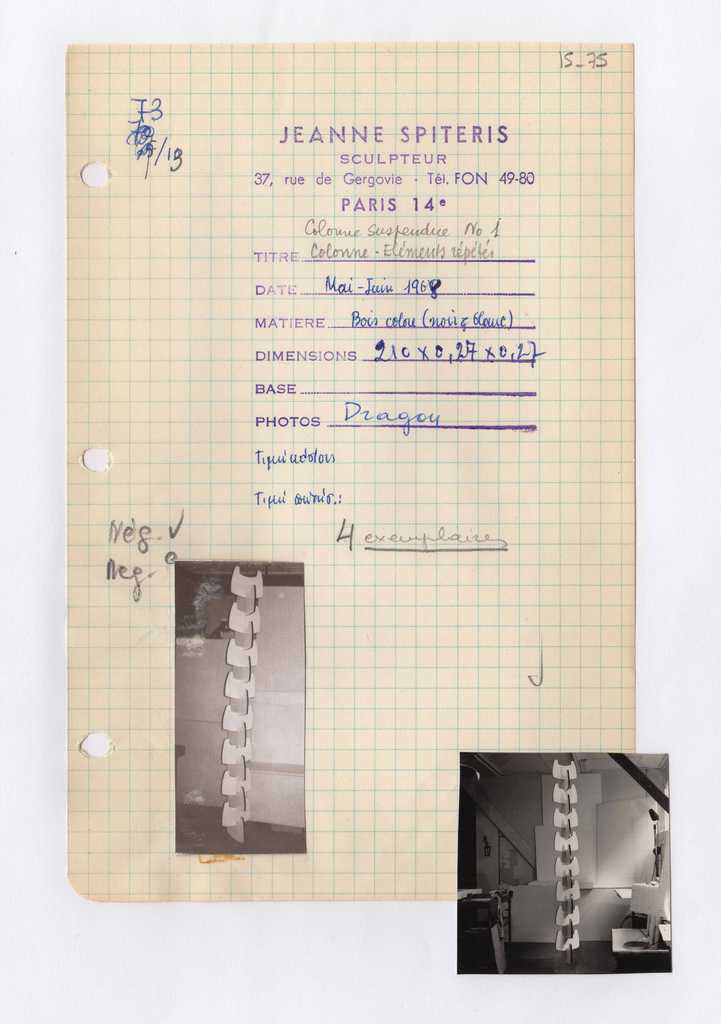 15-75
73
/13
JEANNE SPITERIS
SCULPTEUR
37, rue de Gergovie - Tél. FON 49-80
PARIS 14e
Colonne suspendue No 1
TITRE Colonne - Eléments répétés
DATE Mai-Juin 1968
MATIERE Bois color (noir & blanc)
DIMENSIONS 210 x 0,27 x 0,27
BASE
PHOTOS Dragou
Τιμή
Τιμή
4 exemplaires
Nég. √
Neg.